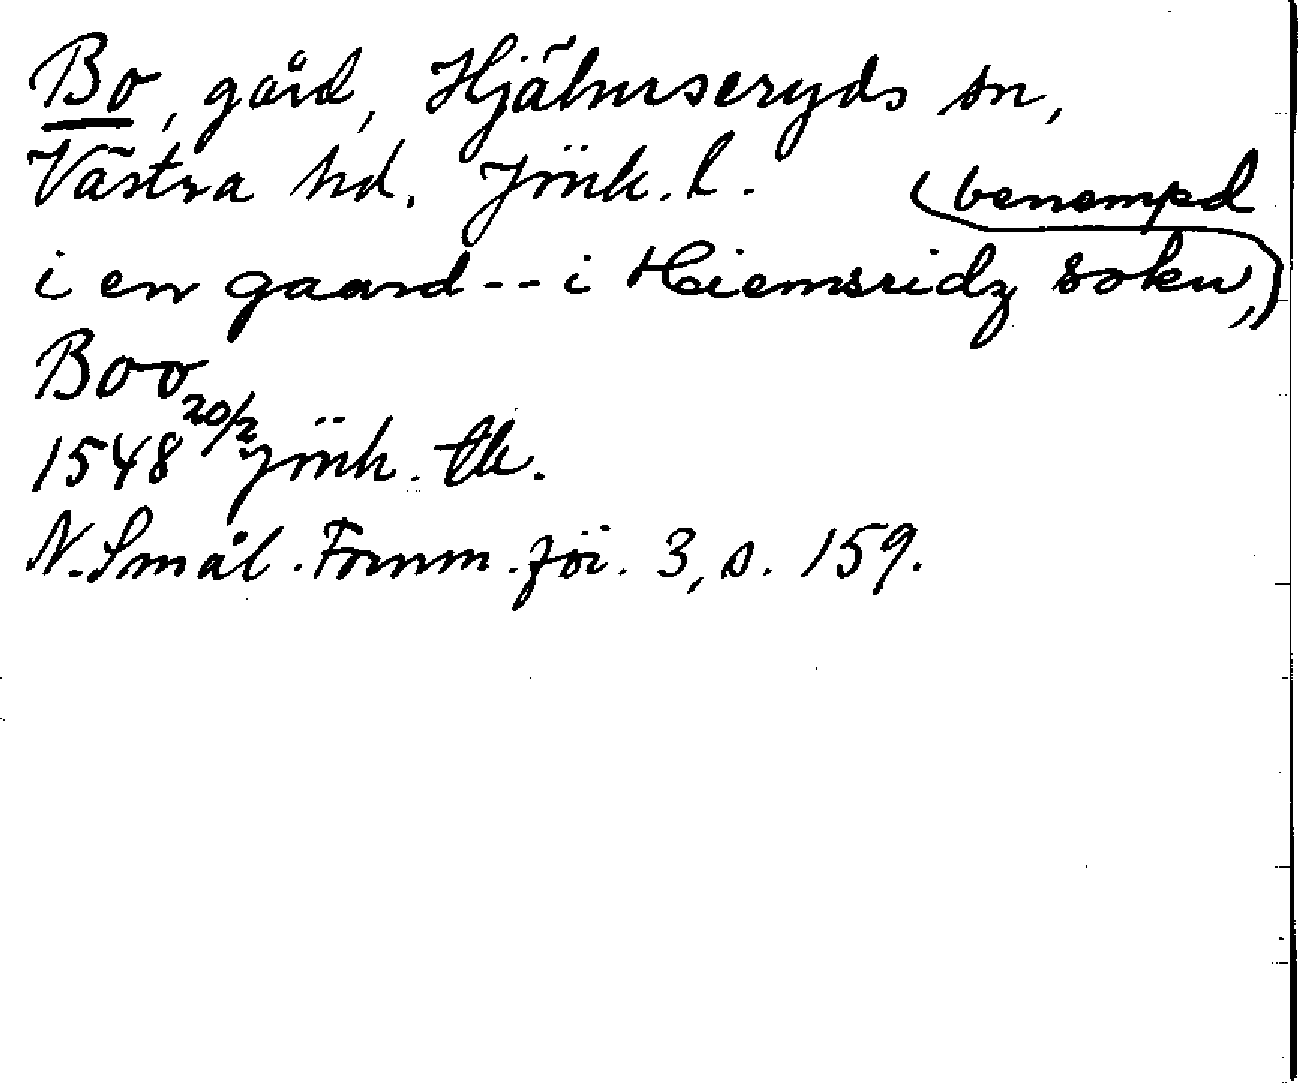 Bo, gård, Hjälmseryds sn,
Västra hd. Jönk. l. (benempd
i en gaard -- i Hiemsridz sokn,)
Boo
1548 20/2 Jönk. tb.
N. Smål. Fornm. för. 3, s. 159.